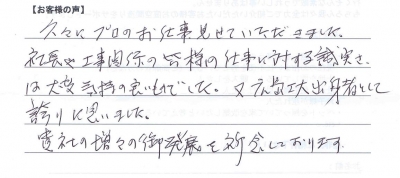 【お客様の声】
久々にプロのお仕事見せていただきました。
社長や工事関係の皆様の仕事に対する誠実さ、
は大変気持の良いものでした。又広島工大出身者として
誇りに思いました。
貴社の増々の御発展を祈念しております。